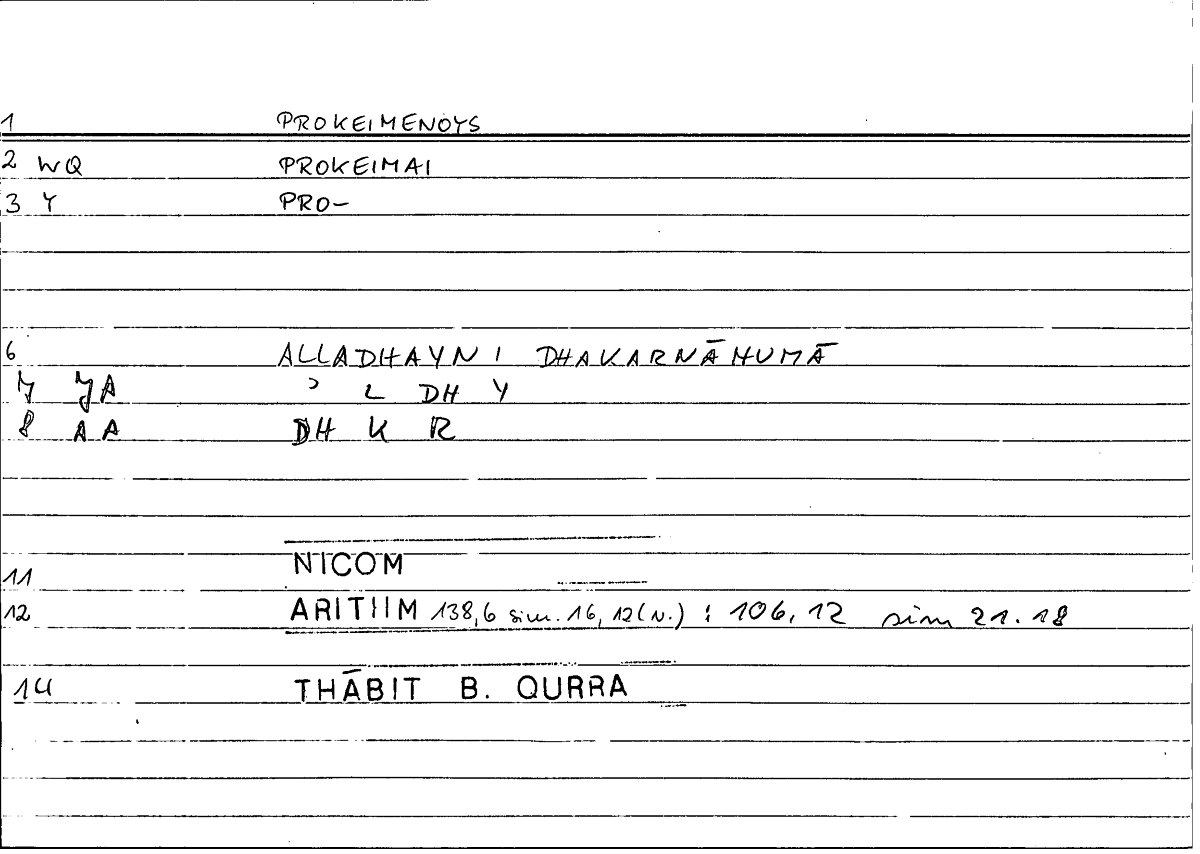 1 PROKEIMENOYS
2 WQ PROKEIMAI
3 Y PRO-
6 ALLADHAYNI DHAKARNĀHUMĀ
7 JA ʾ L DHY
8 AA DH K R
11 NICOM
12 ARITIIM 138,6 sim. 16,12(N.) : 106,12 sim 21.18
14 THĀBIT B. QURRA